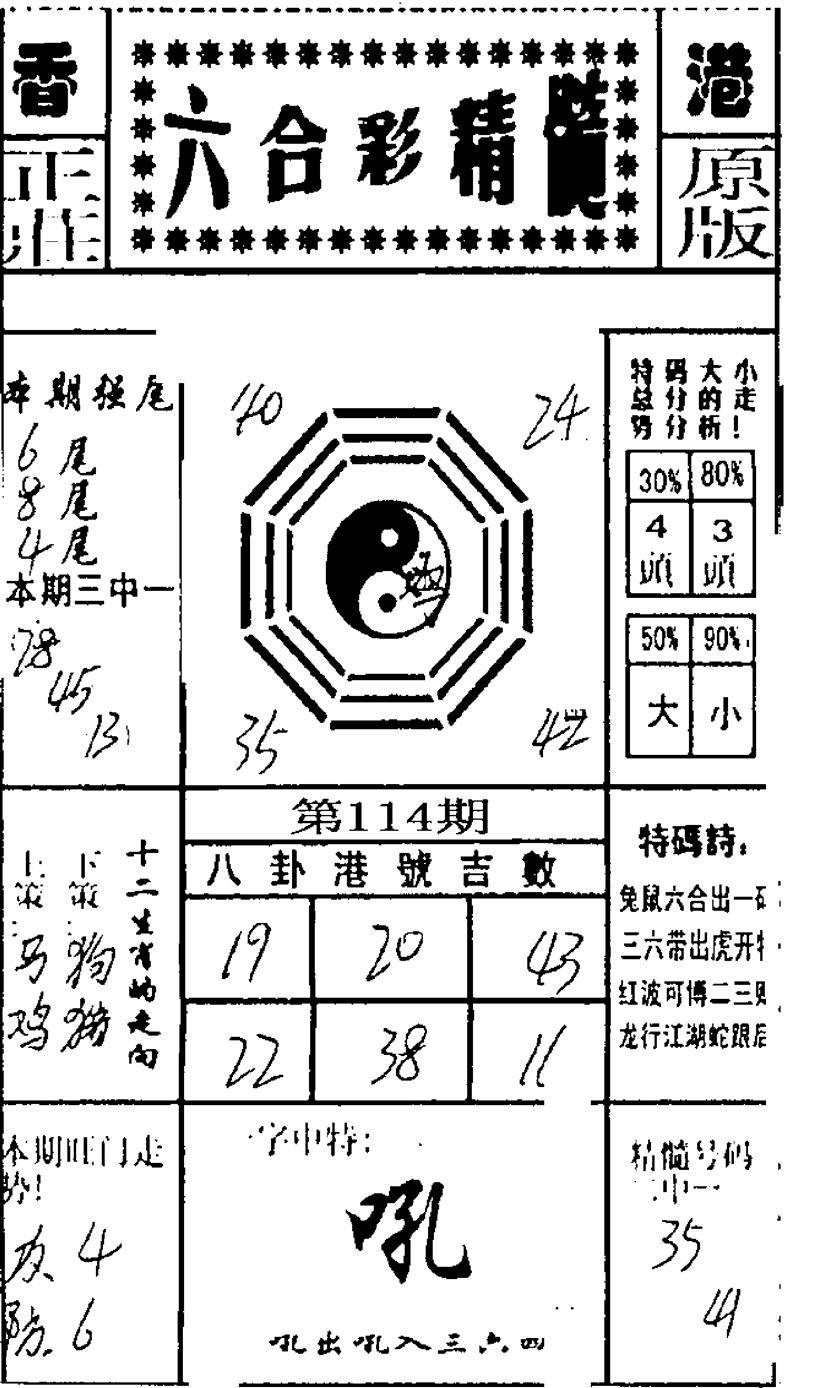 香
港
六合彩精髓
正莊
原版
本期强尾
6尾
8尾
4尾
本期三中一
28
45
13
40
24
35
42
特碼大小
总分的走
势分析！
30% 80%
4頭 3頭
50% 90%
大 小
第114期
八卦港號吉數
19 20 43
22 38 11
十二生肖的走向
上策：马鸡
下策：狗猪
特碼詩：
兔鼠六合出一码
三六带出虎开特
红波可博二三
龙行江湖蛇跟后
本期旺门走
势！
4
防.6
一字中特：
吼
吼出吼入三六四
精髓号码
二中一
35
41